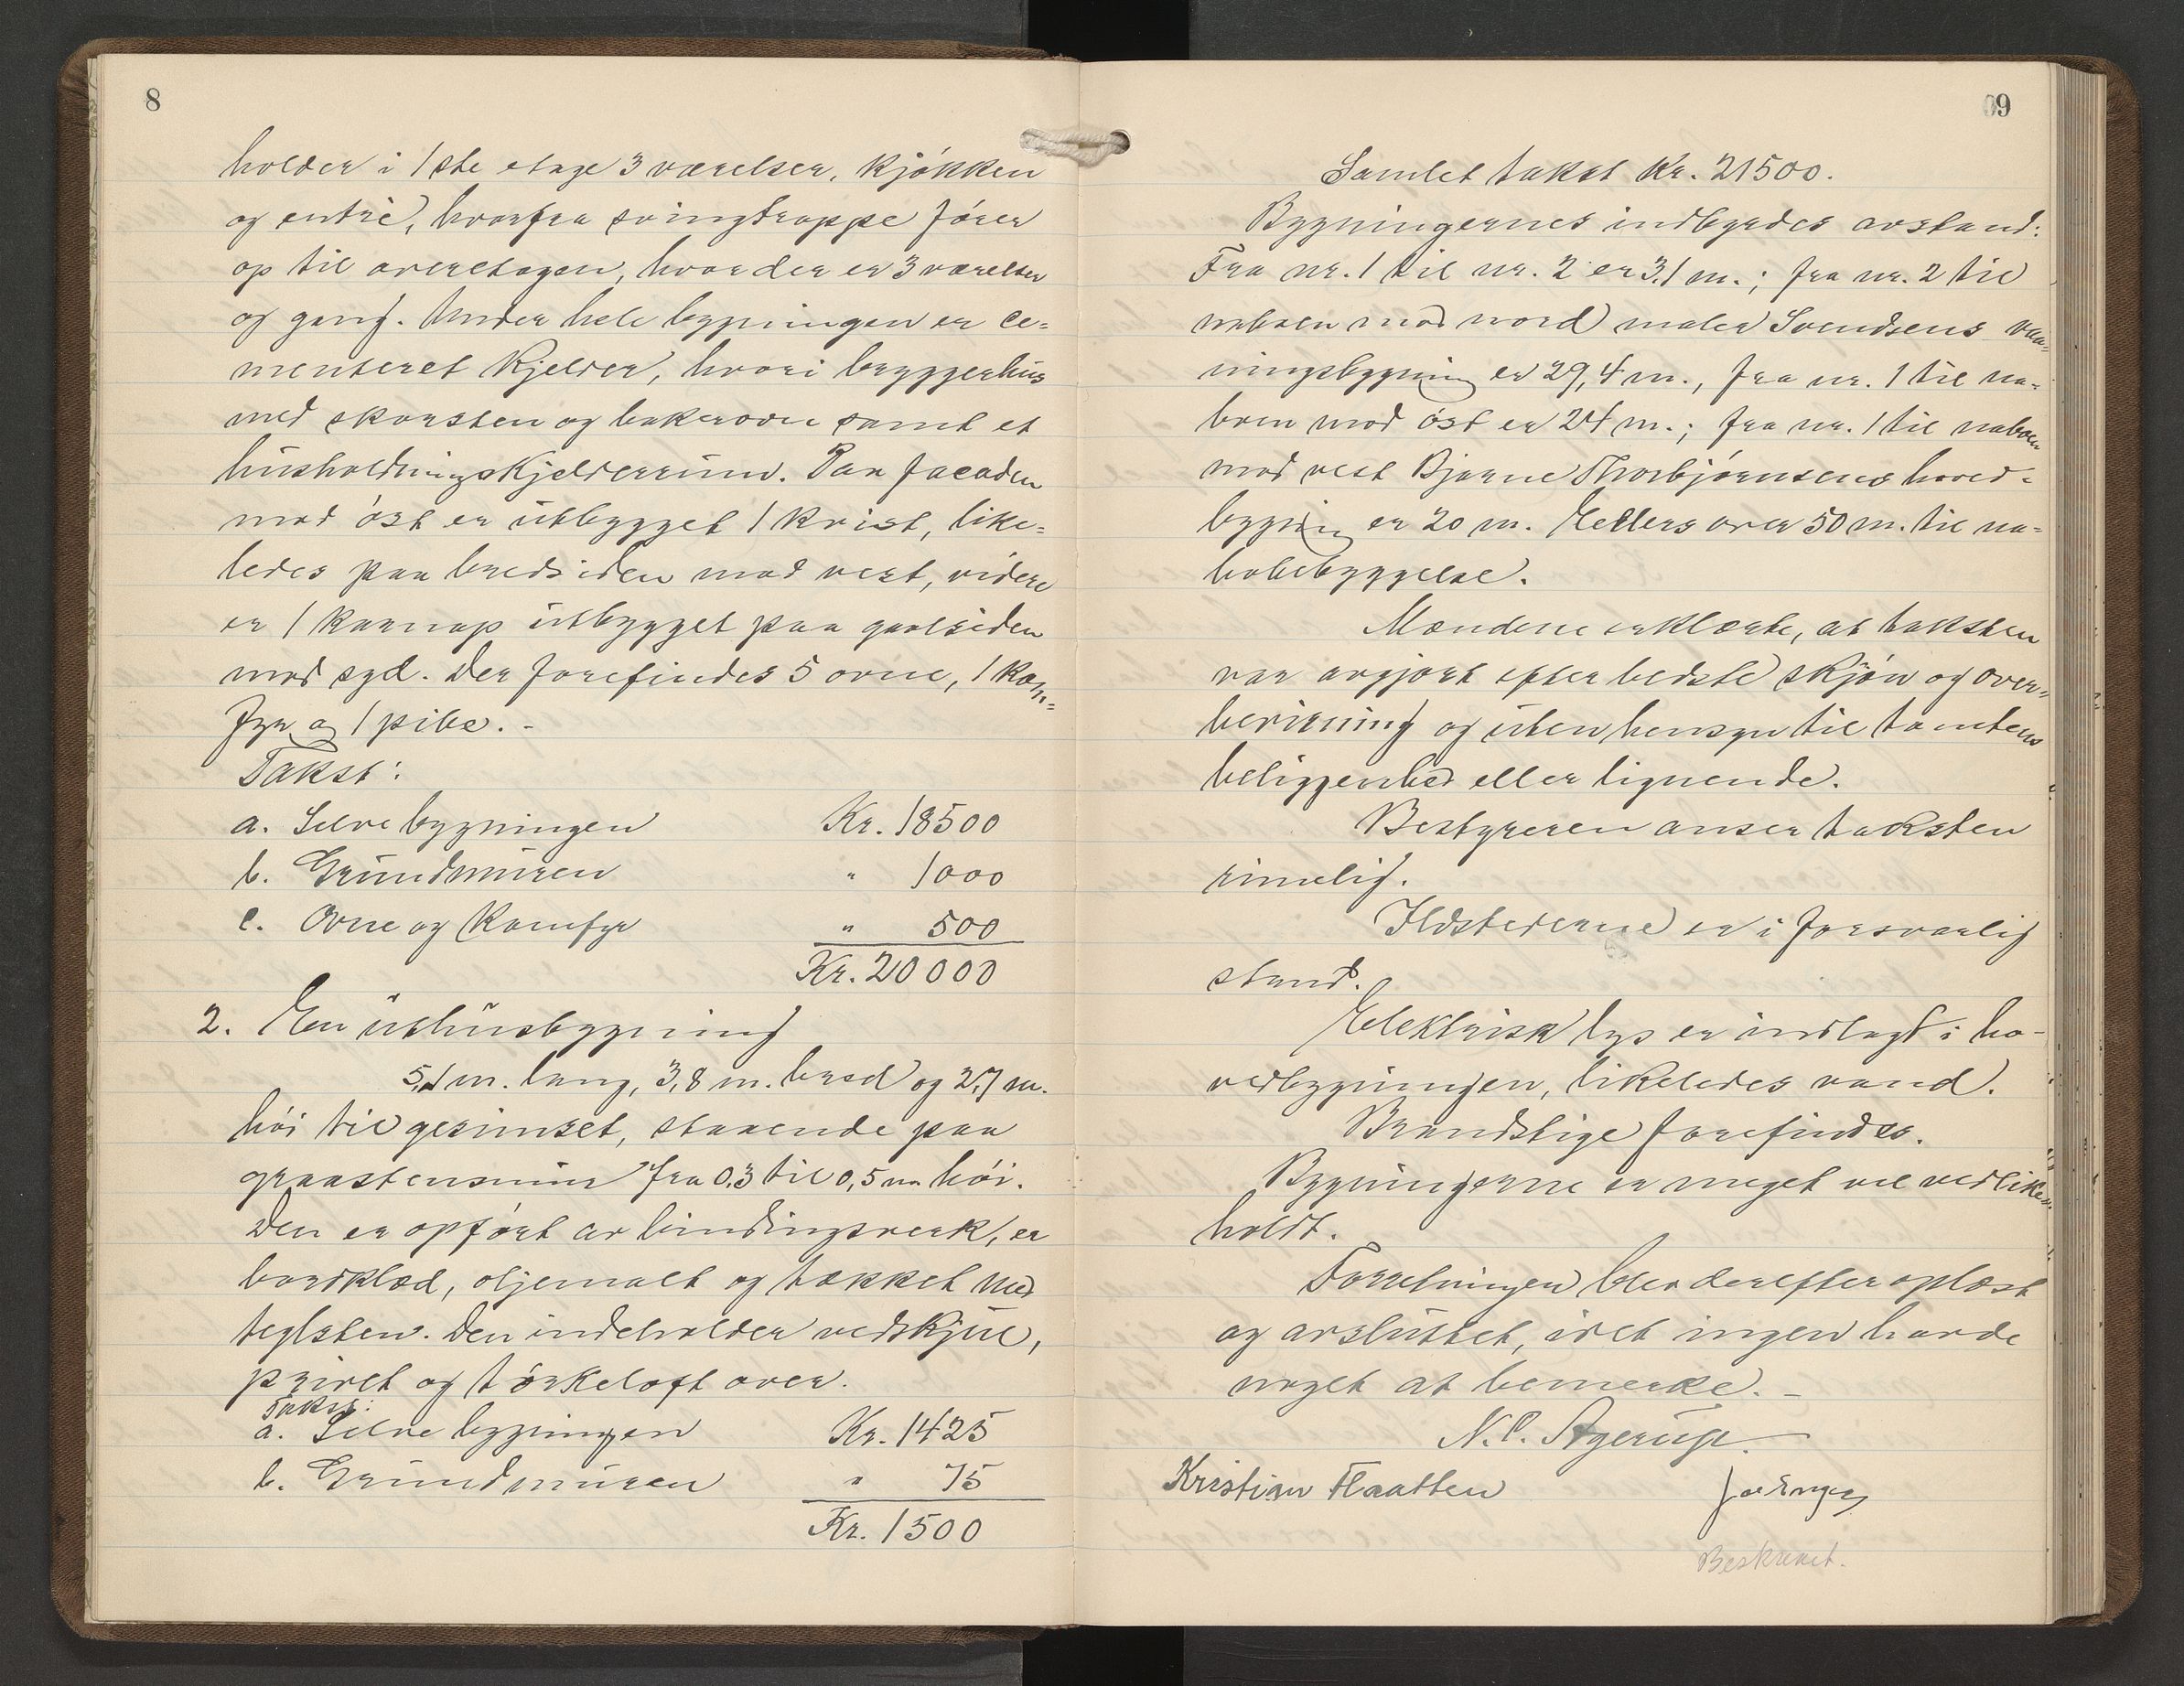 8
holder i 1ste etage 3 værelser, kjøkken
og entré, hvorfra svingtrappe fører
op til overetagen, hvor der er 3 værelser
og gang. Under hele bygningen er ce=
menteret kjelder, hvori bryggerhus
med skorsten og bakerovn samt et
husholdningskjelderrum. Paa facaden
mod øst er utbygget 1 kvist, like=
ledes paa bredsiden mod vest, videre
er 1 karnap utbygget paa gavlsiden
mod syd. Der forefindes 5 ovne, 1 kom=
fyr og 1 pibe. -
Takst:
a. Selve bygningen Kr. 18500
b. Grundmuren " 1000
c. Ovne og Komfyr " 500
Kr. 20000
2. En uthusbygning
5,1 m. lang, 3,8 m. bred og 2,7 m.
høi til gesimset, staaende paa
graastensmur fra 0,3 til 0,5 m høi.
Den er opført av bindingsverk, er
bordklæd, oljemalt og tækket med
teglsten. Den indeholder vedskjul,
privet og tørkeloft over.
Takst:
a. Selve bygningen Kr. 1425
b. Grundmuren " 75
Kr. 1500
9
Samlet takst Kr. 21500.
Bygningernes indbyrdes avstand:
Fra nr. 1 til nr. 2 er 3,1 m.; fra nr. 2 til
naboen mod nord maler Svendsens vaa=
ningsbygning er 29,4 m., fra nr. 1 til na=
boen mod øst er 24 m.; fra nr. 1 til naboen
mod vest Bjarne Thorbjørnsens hoved=
bygning er 20 m. Ellers over 50 m. til na=
bobebyggelse.
Mændene erklærte, at taksten
var avgjort efter bedste skjøn og over=
bevisning og uten hensyn til tomtens
beliggenhed eller lignende.
Bestyreren anser taksten
rimelig.
Ildstederne er i forsvarlig
stand.
Elektrisk lys er indlagt i ho-
vedbygningen, likeledes vand.
Brandstige forefindes.
Bygningerne er meget vel vedlike=
holdt.
Forretningen blev derefter oplæst
og avsluttet, idet ingen havde
noget at bemerke. -
N. C. Agerup.
Kristian Flaatten
Beskrevet.